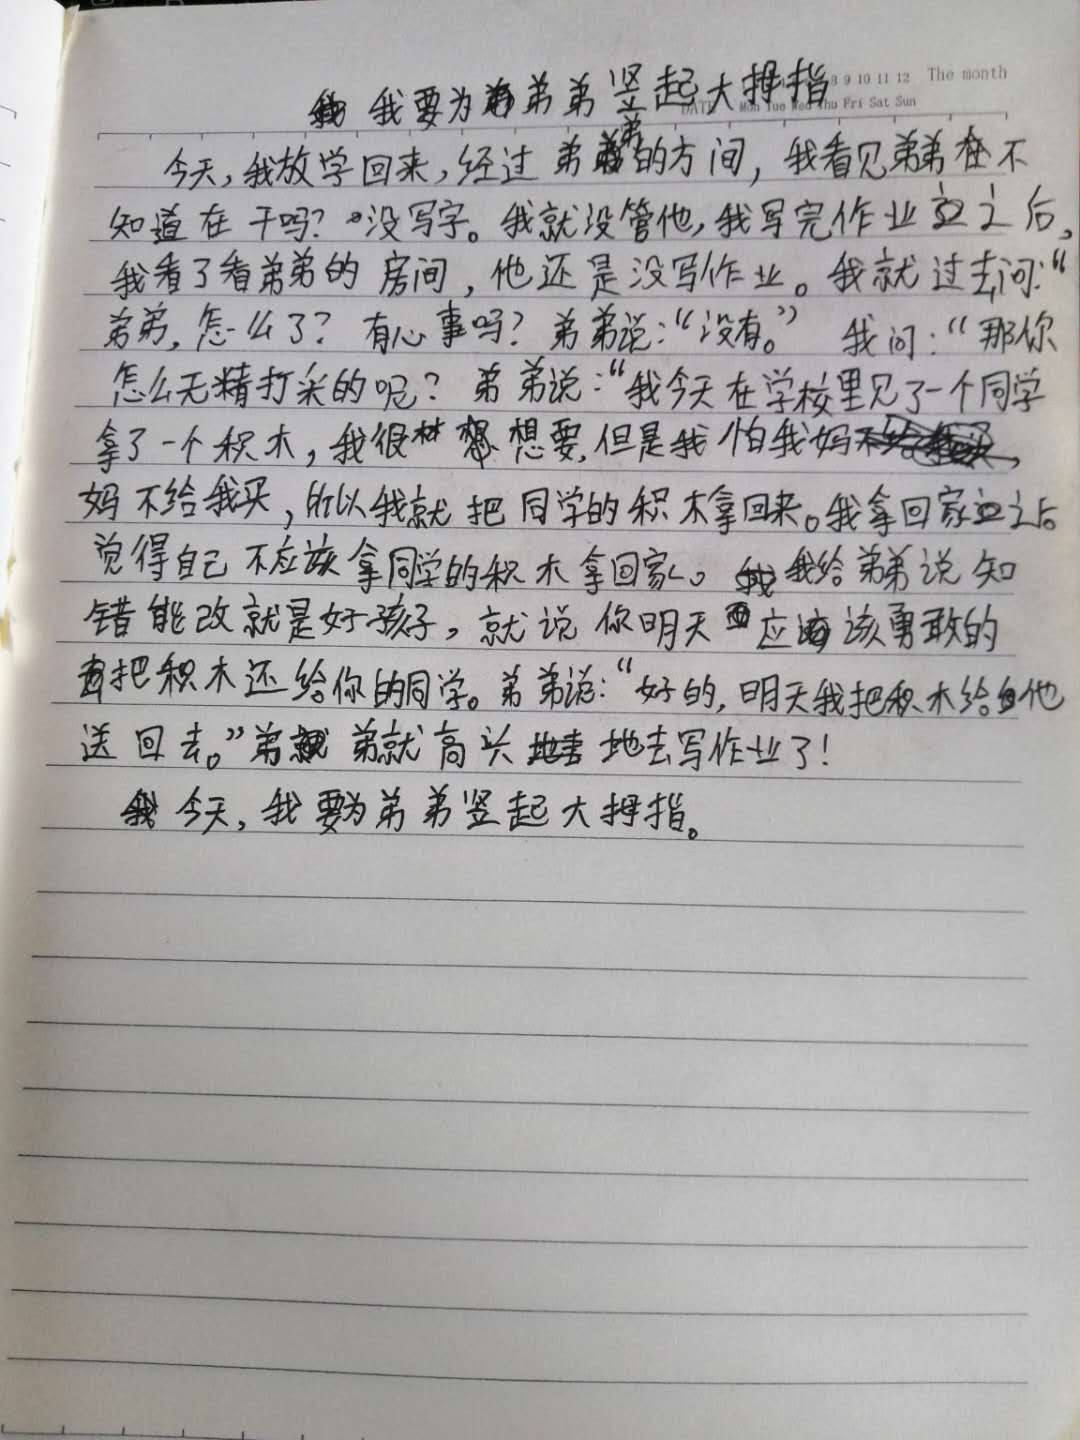 8 9 10 11 12 The month
DATE Mon Tue Wed Thu Fri Sat Sun
我要为弟弟竖起大拇指
今天,我放学回来,经过弟弟的方间,我看见弟弟在不
知道在干吗?没写字。我就没管他,我写完作业之后,
我看了看弟弟的房间,他还是没写作业。我就过去问:“
弟弟,怎么了?有心事吗?弟弟说:“没有。” 我问:“那你
怎么无精打采的呢?弟弟说:“我今天在学校里见了一个同学
拿了一个积木,我很想要,但是我怕我妈
妈不给我买,所以我就把同学的积木拿回来。我拿回家之后
觉得自己不应该拿同学的积木拿回家。我给弟弟说知
错能改就是好孩子,就说你明天应该勇敢的
把积木还给你的同学。弟弟说:“好的,明天我把积木给他
送回去。”弟弟就高兴地去写作业了!
今天,我要为弟弟竖起大拇指。